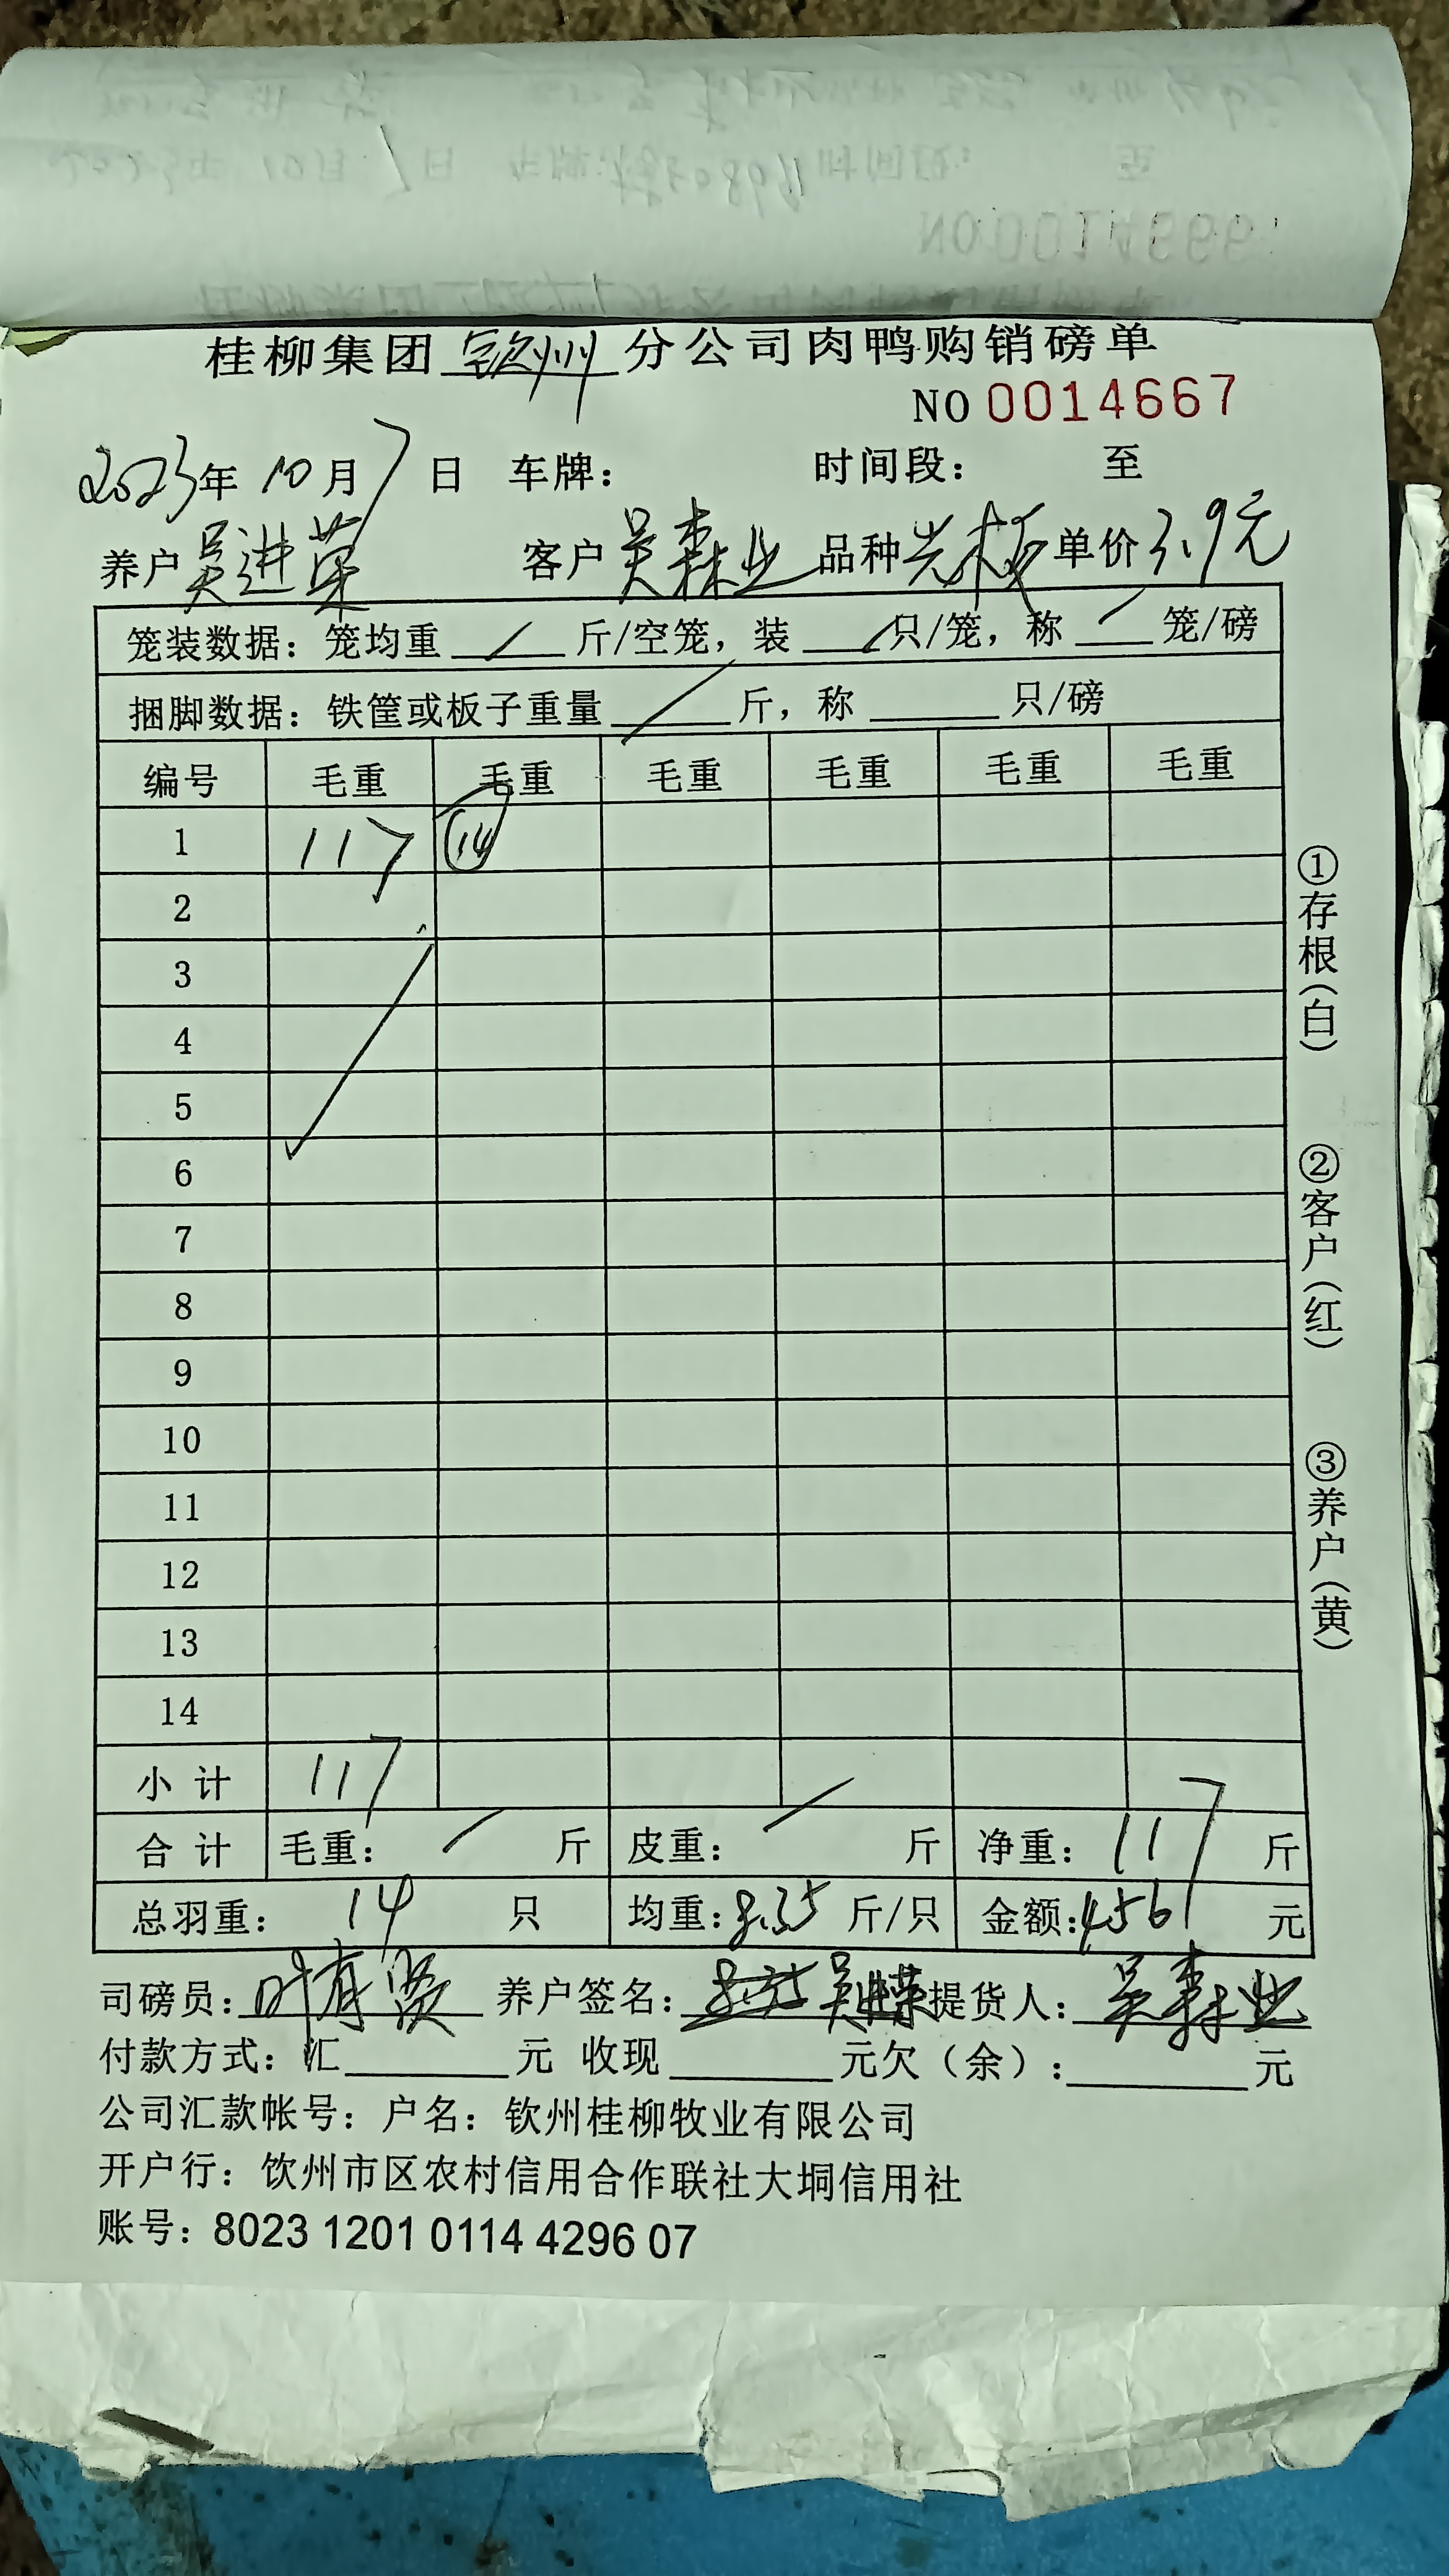 桂柳集团 钦州 分公司肉鸭购销磅单
NO 0014667
2023年 10月 7日 车牌: 时间段: 至
养户 吴进荣 客户 吴森业 品种 光板 单价 3.9元
笼装数据: 笼均重 / 斤/空笼, 装 / 只/笼, 称 / 笼/磅
捆脚数据: 铁筐或板子重量 / 斤, 称 只/磅
编号 毛重 毛重 毛重 毛重 毛重 毛重
1 117 14
2
3
4
5
6
7
8
9
10
11
12
13
14
小计 117
合计 毛重: / 斤 皮重: / 斤 净重: 117 斤
总羽重: 14 只 均重: 8.35 斤/只 金额: 456 元
司磅员: 叶有贤 养户签名: 吴进荣 提货人: 吴森业
付款方式: 汇 元 收现 元欠(余): 元
公司汇款帐号: 户名: 钦州桂柳牧业有限公司
开户行: 饮州市区农村信用合作联社大垌信用社
账号: 8023 1201 0114 4296 07
①存根(白)
②客户(红)
③养户(黄)